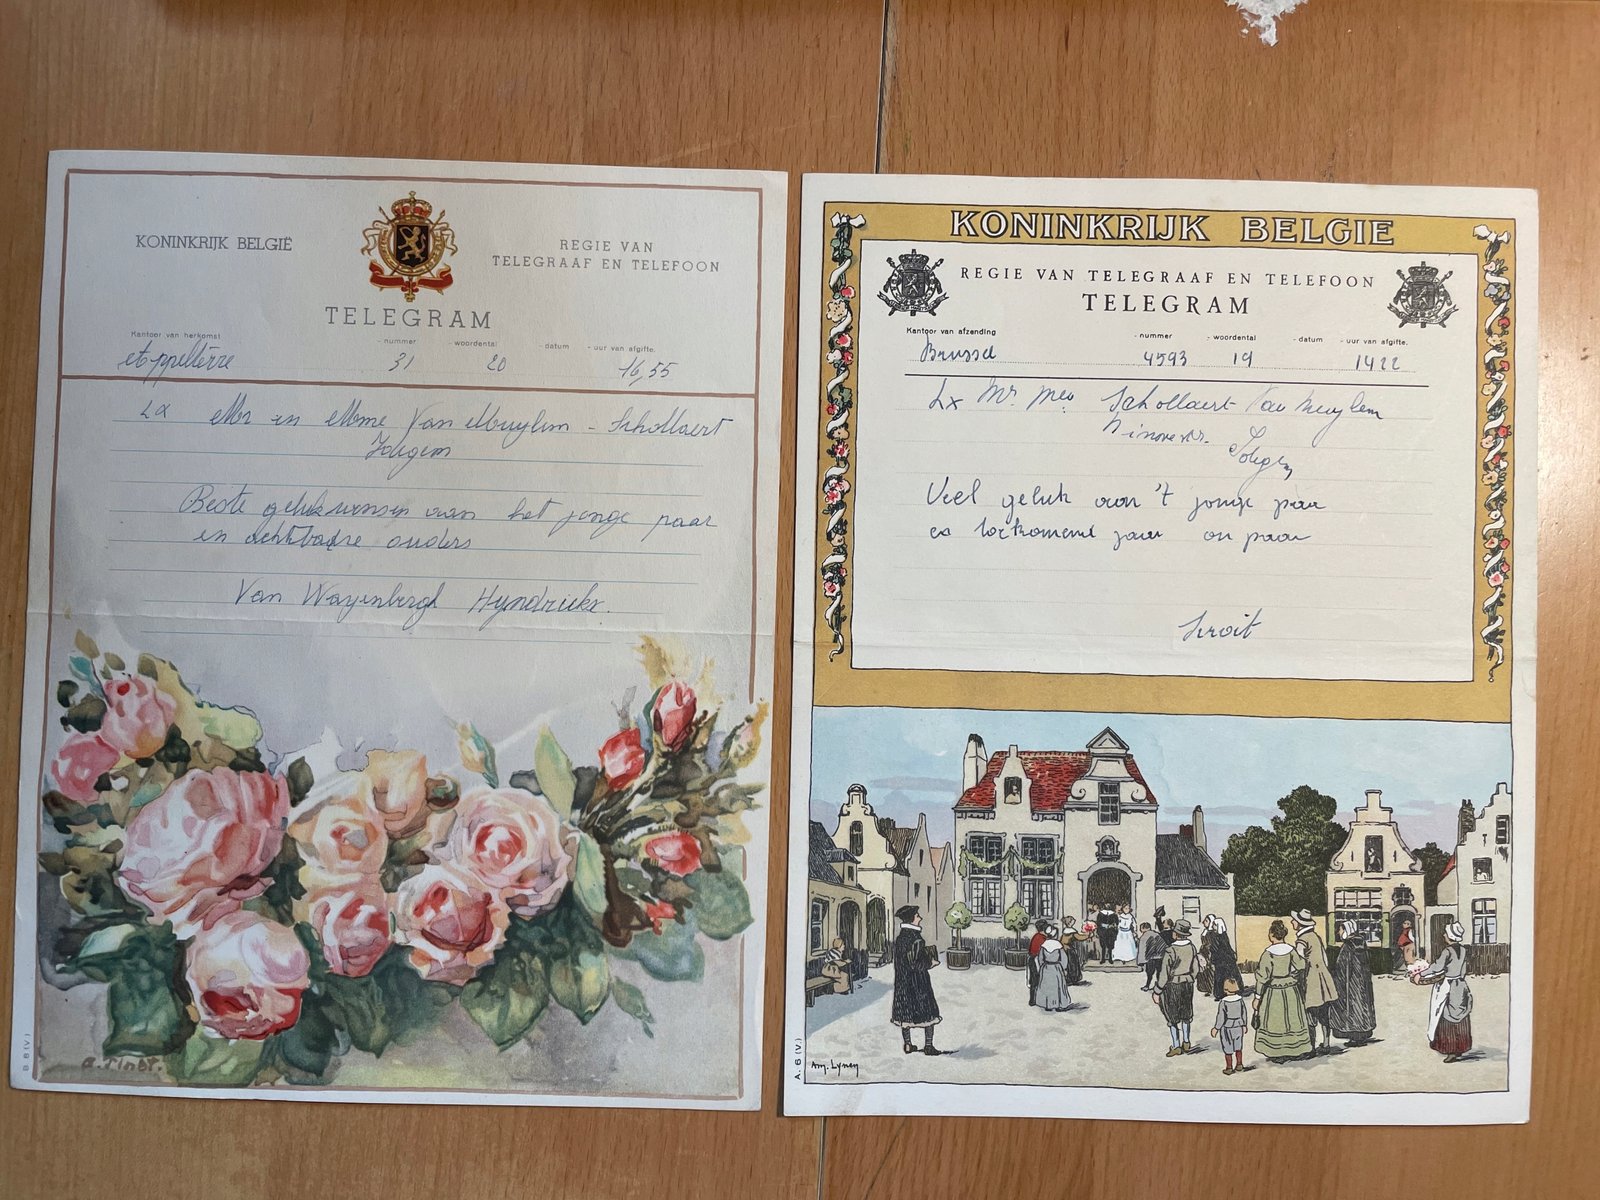 KONINKRIJK BELGIË
REGIE VAN
TELEGRAAF EN TELEFOON
TELEGRAM
Kantoor van herkomst - nummer - woordental - datum - uur van afgifte.
31 20 16,55
Lx Mr en Mme Van Muylem - Schollaert
Zottegem
Beste gelukwensen aan het jonge paar
en achtbare ouders
Van Wayenbergh Hyndrickx.
B. B (V.)
KONINKRIJK BELGIE
REGIE VAN TELEGRAAF EN TELEFOON
TELEGRAM
Kantoor van afzending - nummer - woordental - datum - uur van afgifte.
Brussel 4593 19 1422
Lx Mr Mev Schollaert Van Muylem
Veel geluk aan 't jonge paar
en toekomend jaar
A. B (V.)
Am. Lynen